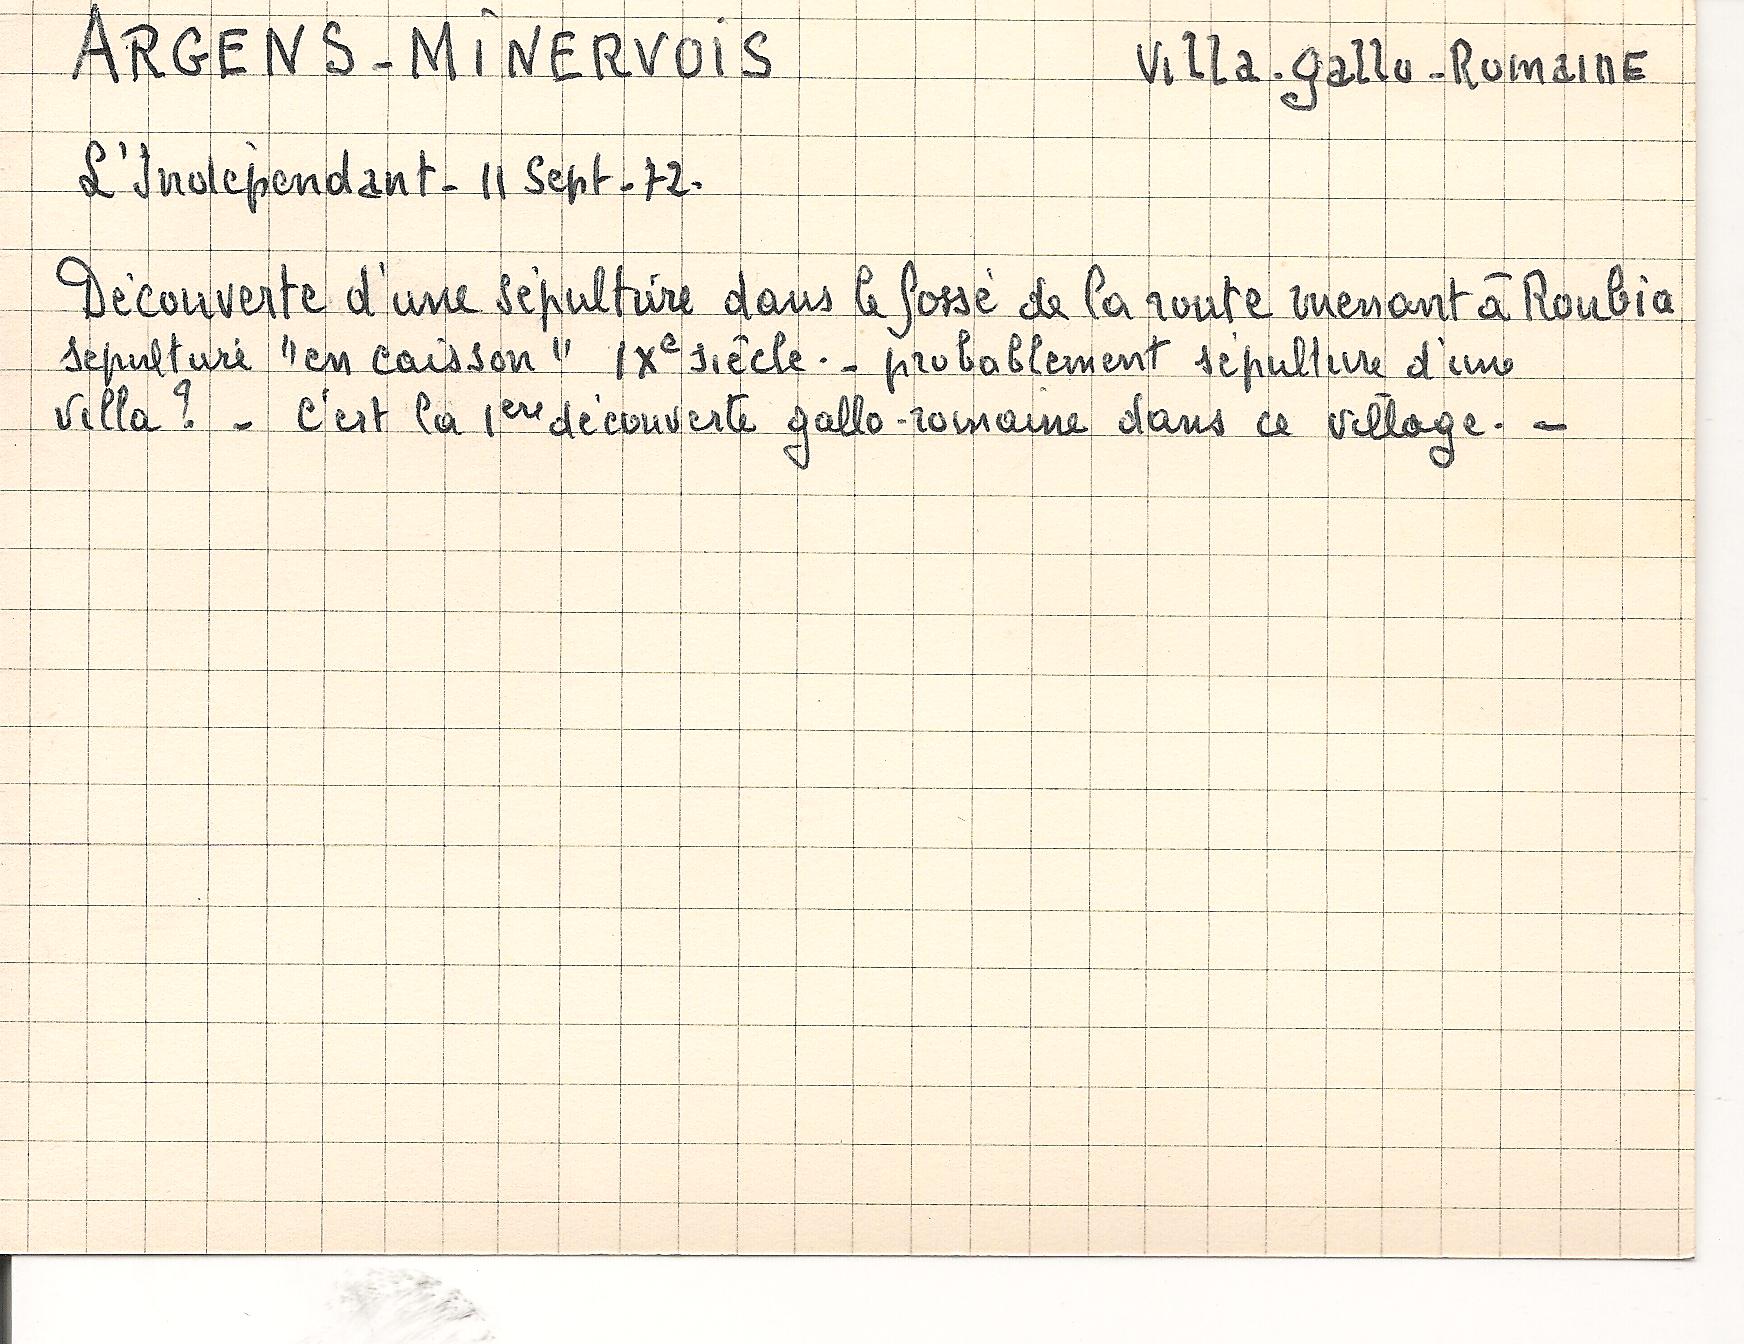 ARGENS-MINERVOIS Villa-gallo-Romaine
L'Indépendant - 11 Sept-72.
Découverte d'une sépulture dans le fossé de la route menant à Roubia
sépulture "en caisson" IXe siècle. - probablement sépulture d'une
villa ? - C'est la 1ere découverte gallo-romaine dans ce village. -